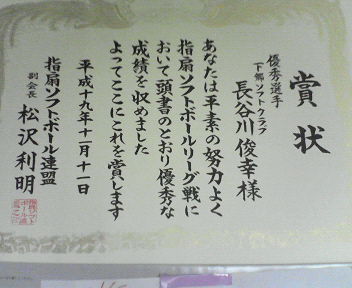 賞状
優秀選手
下郷ソフトクラブ
長谷川俊幸様
あなたは平素の努力よく
指扇ソフトボールリーグ戦に
おいて頭書のとおり優秀な
成績を収めました
よってここにこれを賞します
平成十九年十一月十一日
指扇ソフトボール連盟
副会長 松沢利明